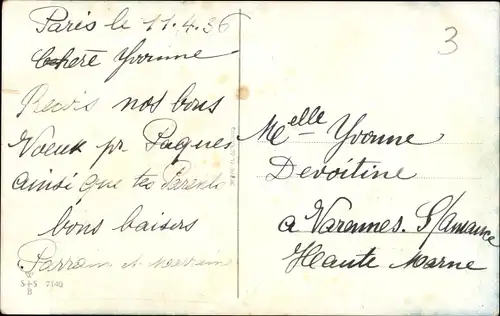 Paris le 11.4.36
Chère Yvonne
Recois nos bons
Voeux pr Paques
ainsi que tes Parents
bons baisers
Parrain et
S+S 7140
B
3
Melle Yvonne
Devoitine
a Varennes. S/Amance
Haute Marne